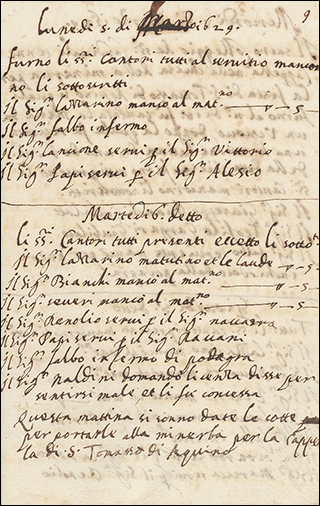 9
Lunedì 5. di Marzo 1629.
furno li ssri. Cantori tutti al servitio mancor
no li sottoscritti
Il Sigr. lazzarino mancò al mat.no — v — 5
Il Sigr. falbo infermo
Il Sigr. lancione servì p il Sigr. Vittorio
Il Sigr. Papi servì p il Sigr. Alesio
Martedì 6. detto
li ssri. Cantori tutti presenti eccetto li sottos.
Il Sigr. lazzarino matutino et le laude — v — 5
Il Sigr. Bianchi mancò al mat.no — v — 5
Il Sigr. severi mancò al mat.no — v — 5
Il Sigr. Renolio servì p il Sigr. navarra
Il Sigr. Papi servì p il Sigr.
Il Sigr. falbo infermo di podagra
Il Sigr. naldini domandò licenza disse per
sentirsi male et li fu concessa
Questa mattina si sonno date le cotte
per portarle alla minerba per la Cappel
la di S. Tomasso di Aquino